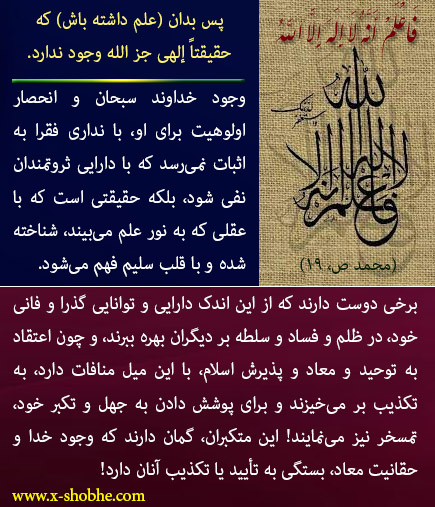 پس بدان (علم داشته باش) که
حقیقتاً إلهی جز الله وجود ندارد.
فَاعْلَمْ أَنَّهُ لَا إِلَهَ إِلَّا اللَّهُ
وجود خداوند سبحان و انحصار
اولوهیت برای او، با نداری فقرا به
اثبات نمی‌رسد که با دارایی ثروتمندان
نفی شود، بلکه حقیقتی است که با
عقلی که به نور علم می‌بیند، شناخته
شده و با قلب سلیم فهم می‌شود.
(محمد ص، ۱۹)
برخی دوست دارند که از این اندک دارایی و توانایی گذرا و فانی
خود، در ظلم و فساد و سلطه بر دیگران بهره ببرند، و چون اعتقاد
به توحید و معاد و پذیرش اسلام، با این میل منافات دارد، به
تکذیب بر می‌خیزند و برای پوشش دادن به جهل و تکبر خود،
تمسخر نیز می‌نمایند! این متکبران، گمان دارند که وجود خدا و
حقانیت معاد، بستگی به تأیید یا تکذیب آنان دارد!
www.x-shobhe.com